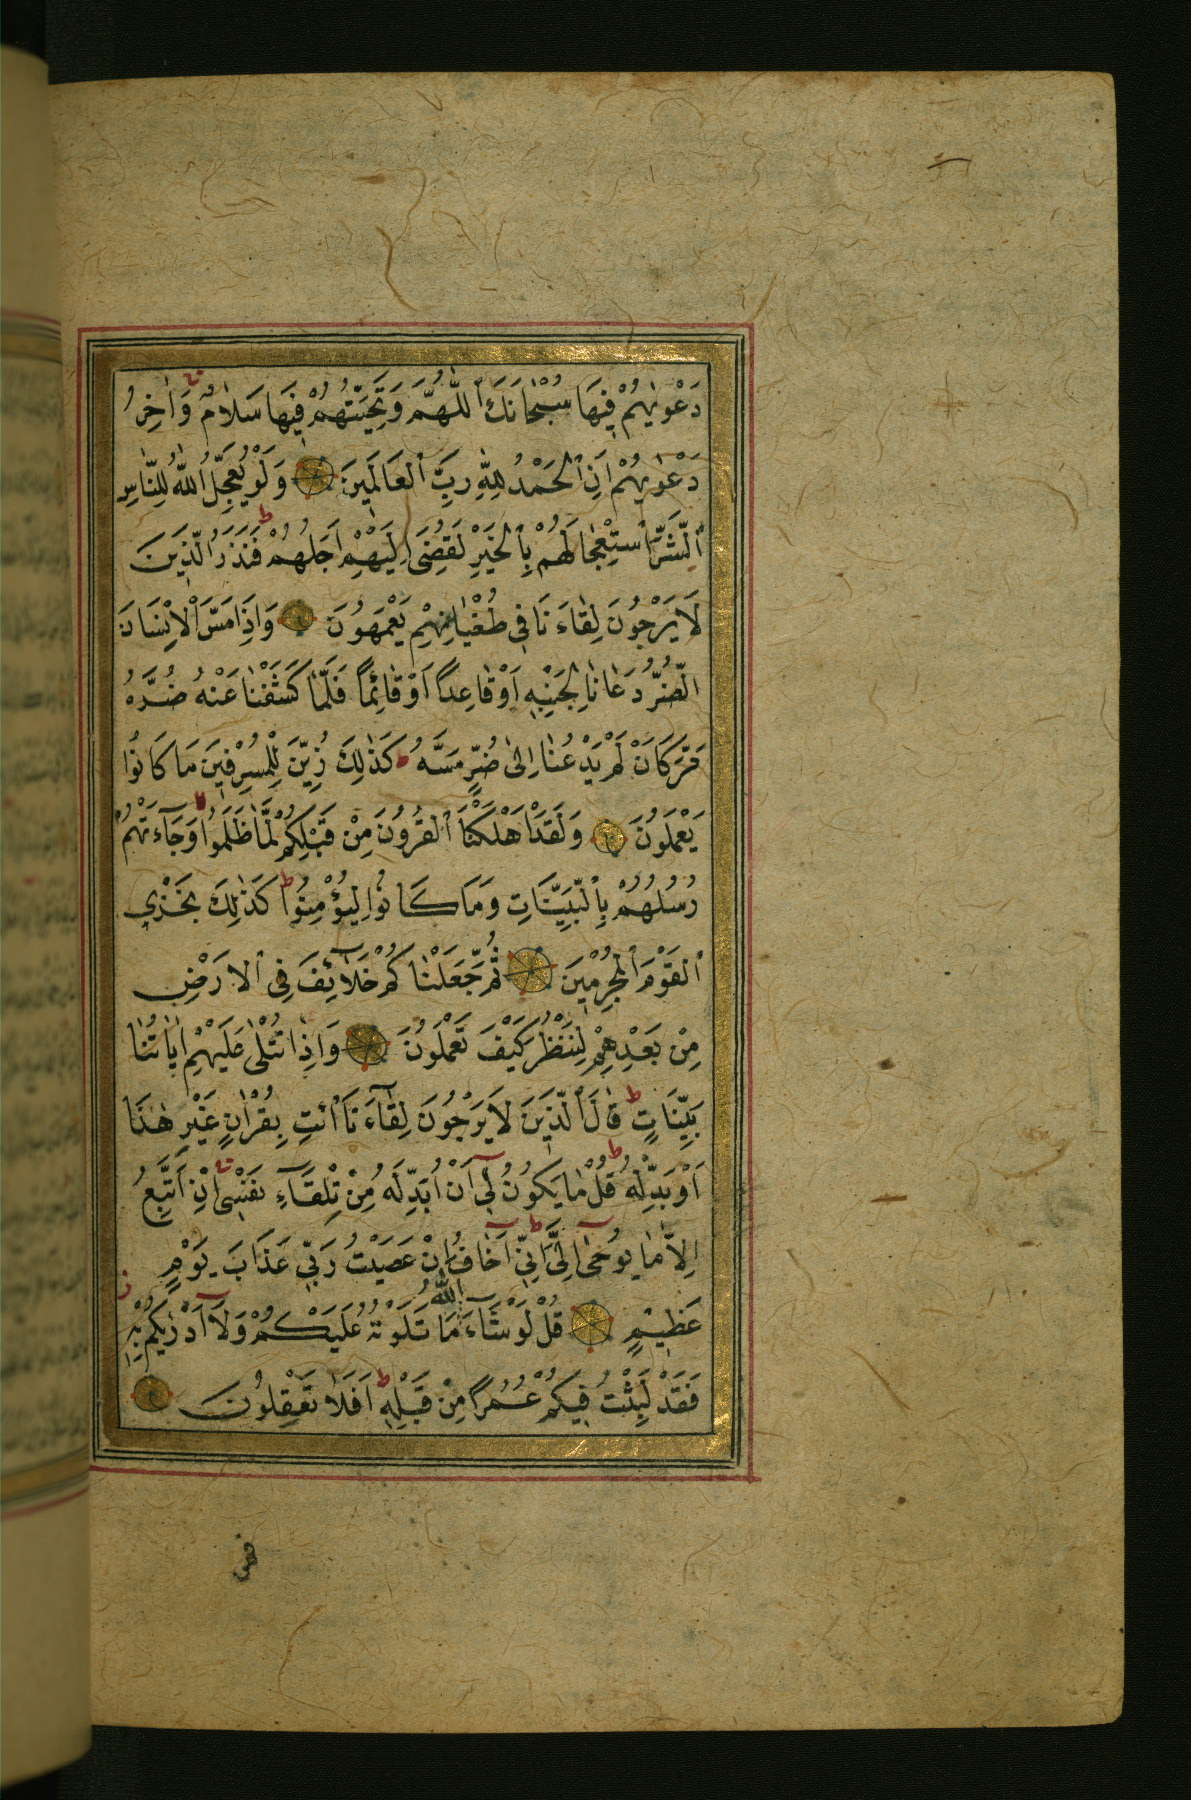 دَعْوٰيهُمْ فِيهَا سُبْحَانَكَ ٱللّٰهُمَّ وَتَحِيَّتُهُمْ فِيهَا سَلَامٌ وَاٰخِرُ
دَعْوٰيهُمْ اَنِ ٱلْحَمْدُ لِلّٰهِ رَبِّ ٱلْعَالَمِينَ وَلَوْ يُعَجِّلُ اللّٰهُ لِلنَّاسِ
ٱلشَّرَّ ٱسْتِعْجَالَهُمْ بِٱلْخَيْرِ لَقُضِيَ اِلَيْهِمْ اَجَلُهُمْ ط فَنَذَرُ الَّذِينَ
لَا يَرْجُونَ لِقَاءَنَا فِي طُغْيَانِهِمْ يَعْمَهُونَ وَاِذَا مَسَّ ٱلْاِنْسَانَ
الضُّرُّ دَعَانَا لِجَنْبِهٖ اَوْ قَاعِدًا اَوْ قَائِمًا فَلَمَّا كَشَفْنَا عَنْهُ ضُرَّهُ
مَرَّ كَاَنْ لَمْ يَدْعُنَا اِلٰى ضُرٍّ مَسَّهُ ط كَذٰلِكَ زُيِّنَ لِلْمُسْرِفِينَ مَا كَانُوا
يَعْمَلُونَ وَلَقَدْ اَهْلَكْنَا ٱلْقُرُونَ مِنْ قَبْلِكُمْ لَمَّا ظَلَمُوا لا وَجَآءَتْهُمْ
رُسُلُهُمْ بِٱلْبَيِّنَاتِ وَمَا كَانُوا لِيُؤْمِنُوا ط كَذٰلِكَ نَجْزِي
ٱلْقَوْمَ ٱلْمُجْرِمِينَ ثُمَّ جَعَلْنَاكُمْ خَلَآئِفَ فِي ٱلْاَرْضِ
مِنْ بَعْدِهِمْ لِنَنْظُرَ كَيْفَ تَعْمَلُونَ وَاِذَا تُتْلٰى عَلَيْهِمْ اٰيَاتُنَا
بَيِّنَاتٍ ط قَالَ ٱلَّذِينَ لَا يَرْجُونَ لِقَآءَنَا ٱئْتِ بِقُرْاٰنٍ غَيْرِ هٰذَا
اَوْ بَدِّلْهُ ط قُلْ مَا يَكُونُ لِيٓ اَنْ اُبَدِّلَهُ مِنْ تِلْقَآءِ نَفْسِي اِنْ اَتَّبِعُ
اِلَّا مَا يُوحٰىٓ اِلَيَّ ط اِنِّيٓ اَخَافُ اِنْ عَصَيْتُ رَبِّي عَذَابَ يَوْمٍ
عَظِيمٍ قُلْ لَوْ شَآءَ اللّٰهُ مَا تَلَوْتُهُ عَلَيْكُمْ وَلَآ اَدْرٰيكُمْ بِهٖ ز
فَقَدْ لَبِثْتُ فِيكُمْ عُمُرًا مِنْ قَبْلِهٖ ط اَفَلَا تَعْقِلُونَ
فمن